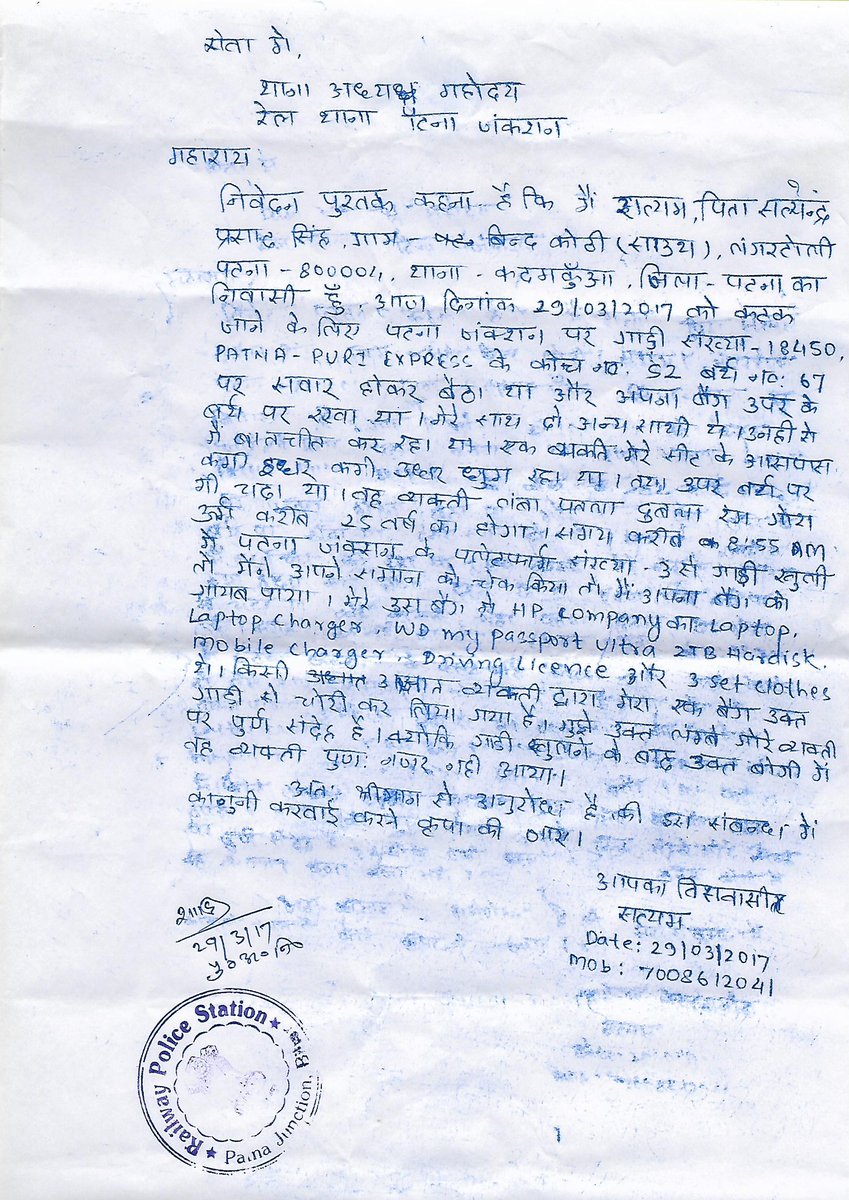 सेवा में,
थाना अध्यक्ष महोदय
रेल थाना पटना जंकशन
महाशय
निवेदन पुर्वक कहना है कि मैं सत्यम, पिता सत्येन्द्र
प्रसाद सिंह, ग्राम - बिन्द कोठी (साउथ), लंगरटोली
पटना - 800004, थाना - कदमकुँआ, जिला - पटना का
निवासी हुँ आज दिनांक 29/03/2017 को कटक
जाने के लिए पटना जंकशन पर गाड़ी संख्या - 18450,
PATNA - PURI EXPRESS के कोच no. S2 बर्थ no: 67
पर सवार होकर बैठा था और अपना बैग उपर के
बर्थ पर रखा था। मेरे साथ दो अन्य साथी थे। उनही से
मैं बातचीत कर रहा था। एक ब्यक्ती मेरे सीट के आसपास
कभी इधर कभी उधर घुम रहा था। तथा उपर बर्थ पर
भी चढ़ा था। वह व्यक्ती लंबा पतला दुबला रंग गोरा
उर्म करीब 25 वर्ष का होगा। समय करीब 8:55 AM
में पटना जंकशन के पलेटफार्म संख्या - 3 से गाड़ी खुली
तो मैंने आपने समान को चेक किया तो मैं अपना बैग को
गायब पाया। मेरे उस बैग मे HP company का Laptop,
Laptop Charger, WD my Passport Ultra 2TB Hardisk,
Mobile Charger, Driving Licence और 3 set clothes
थे। किसी अज्ञात व्यक्ती द्वारा मेरा एक बैग उक्त
गाड़ी से चोरी कर लिया गया है। मुझे उक्त लम्बे गोरे व्यक्ती
पर पुर्ण संदेह है। क्योकि गाडी खुलने के बाद उक्त बोगी में
वह व्यक्ती पुणः नजर नही आया।
अतः श्रीमान से अनुरोध है की इस संबन्ध में
कानुनी करवाई करने कृपा की जाए।
आपका विसवासी
सत्यम
Date: 29/03/2017
Mob: 7008612041
29/3/17
पु०अ०नि
Railway Police Station
Patna Junction, Bihar
1